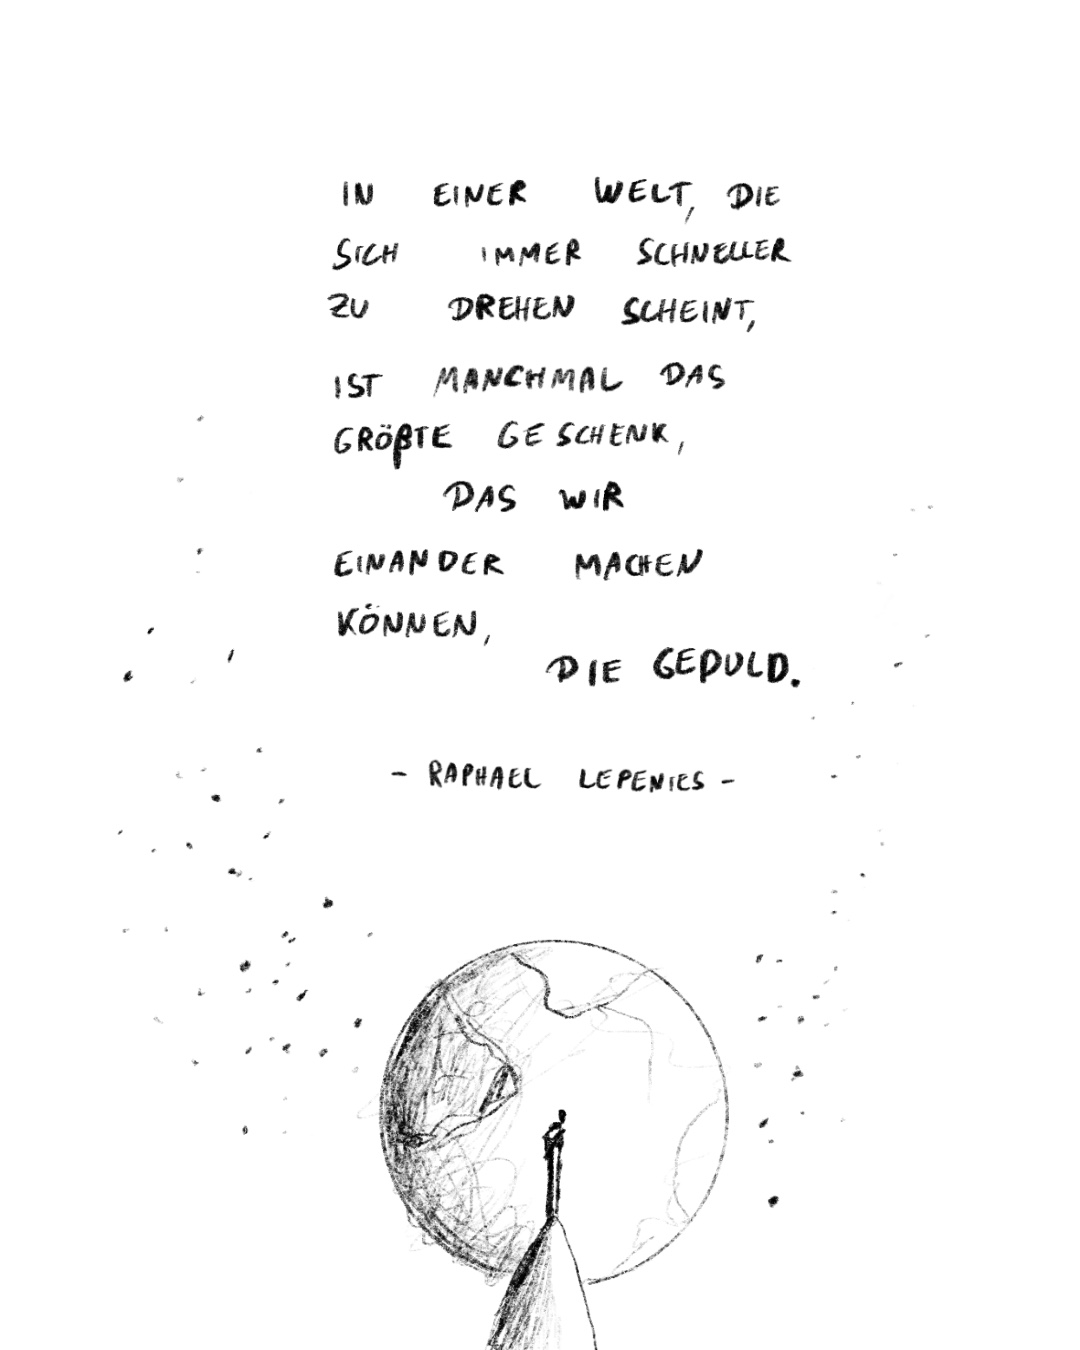 IN EINER WELT, DIE
SICH IMMER SCHNELLER
ZU DREHEN SCHEINT,
IST MANCHMAL DAS
GRÖßTE GESCHENK,
DAS WIR
EINANDER MACHEN
KÖNNEN,
DIE GEDULD.
- RAPHAEL LEPENIES -